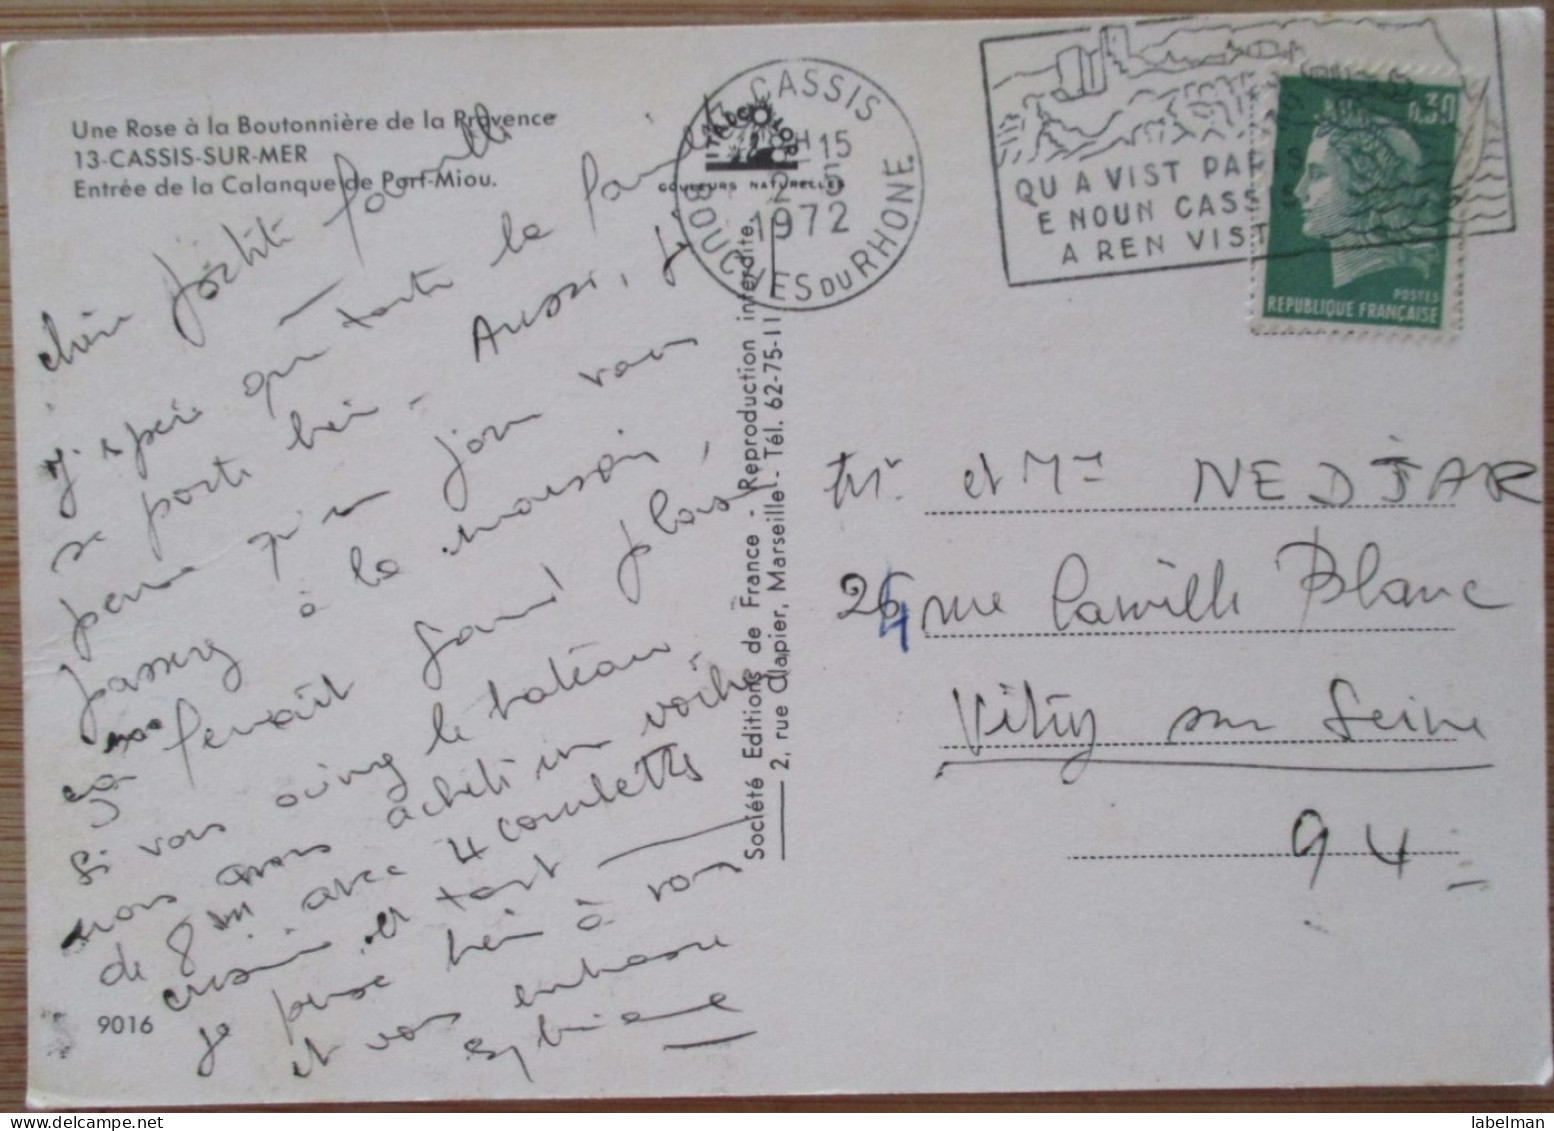 Une Rose à la Boutonnière de la Provence
13-CASSIS-SUR-MER
Entrée de la Calanque de Port-Miou.
chère petite famille
j'espère que toute la famille
se porte bien. Aussi, je
pense qu'un jour vous
passerez à la maison
ça ferait grand plaisir,
Si vous aimez le bateau.
nous avons acheté un voilier
de 8 m avec 4 couchettes
cuisine et tout
je pense bien à vous
et vous embrasse
Sylviane
9016
COULEURS NATURELLES
Société Editions de France - Reproduction interdite.
2, rue Clapier, Marseille - Tél. 62-75-11
CASSIS
H 15
1972
BOUCHES DU RHONE
QU A VIST PARIS
E NOUN CASSIS
A REN VIST
0,30
POSTES
REPUBLIQUE FRANÇAISE
Mr. et Mme NEDJAR
26 rue Camille Blanc
Vitry sur Seine
94